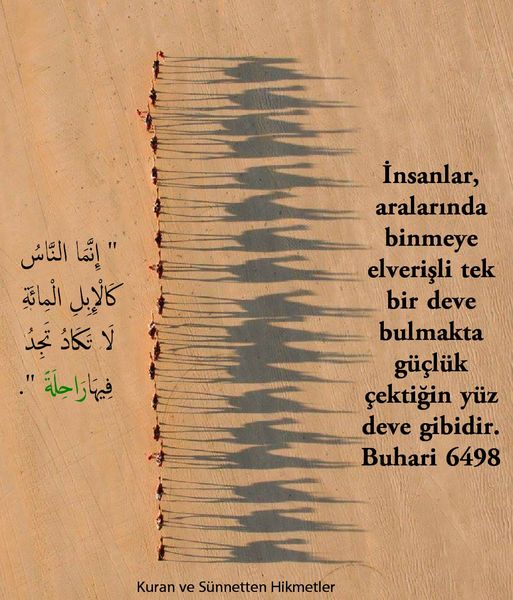 " إِنَّمَا النَّاسُ
كَالْإِبِلِ الْمِائَةِ
لَا تَكَادُ تَجِدُ
فِيهَا رَاحِلَةً ".
İnsanlar,
aralarında
binmeye
elverişli tek
bir deve
bulmakta
güçlük
çektiğin yüz
deve gibidir.
Buhari 6498
Kuran ve Sünnetten Hikmetler